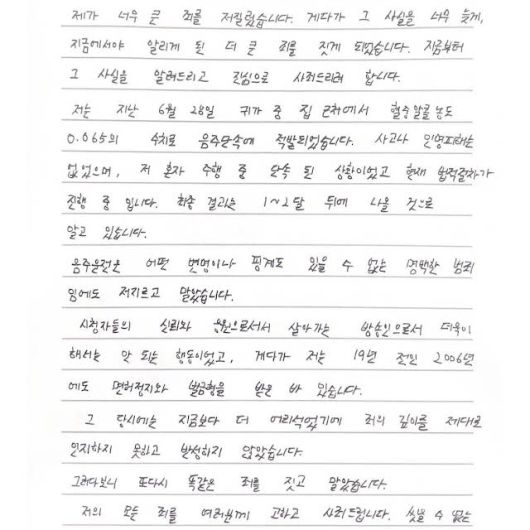 제가 너무 큰 죄를 저질렀습니다. 게다가 그 사실을 너무 늦게,
지금에서야 알리게 된 더 큰 죄를 짓게 되었습니다. 지금부터
그 사실을 알려드리고 진심으로 사죄드리려 합니다.
저는 지난 6월 28일 귀가 중 집 근처에서 혈중 알콜 농도
0.065의 수치로 음주단속에 적발되었습니다. 사고나 인명피해는
없었으며, 저 혼자 주행 중 단속 된 상황이었고 현재 법적절차가
진행 중 입니다. 최종 결과는 1~2달 뒤에 나올 것으로
알고 있습니다.
음주운전은 어떤 변명이나 핑계도 있을 수 없는 명백한 범죄
임에도 저지르고 말았습니다.
시청자들의 신뢰와 응원으로서서 살아가는 방송인으로서 더욱이
해서는 안 되는 행동이었고, 게다가 저는 19년 전인 2006년
에도 면허정지와 벌금형을 받은 바 있습니다.
그 당시에는 지금보다 더 어리석었기에 죄의 깊이를 제대로
인지하지 못하고 반성하지 않았습니다.
그러다보니 또다시 똑같은 죄를 짓고 말았습니다.
저의 모든 죄를 여러분께 고하고 사죄드립니다. 씻을 수 없는